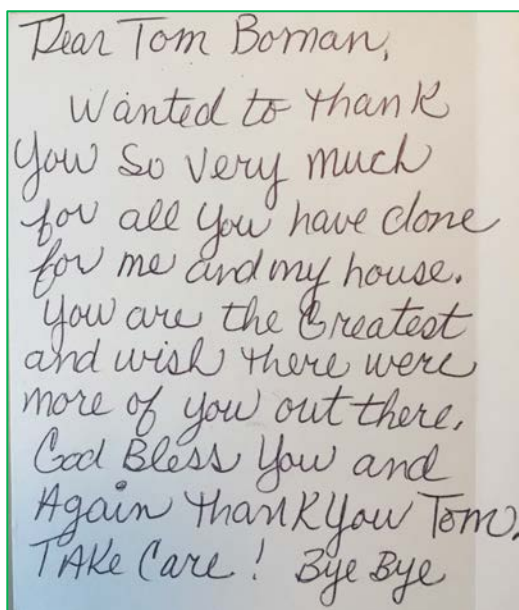 Dear Tom Boman,
Wanted to thank
You so very much
for all you have done
for me and my house.
You are the Greatest
and wish there were
more of you out there.
God Bless You and
Again thank you Tom.
TAKe Care! Bye Bye